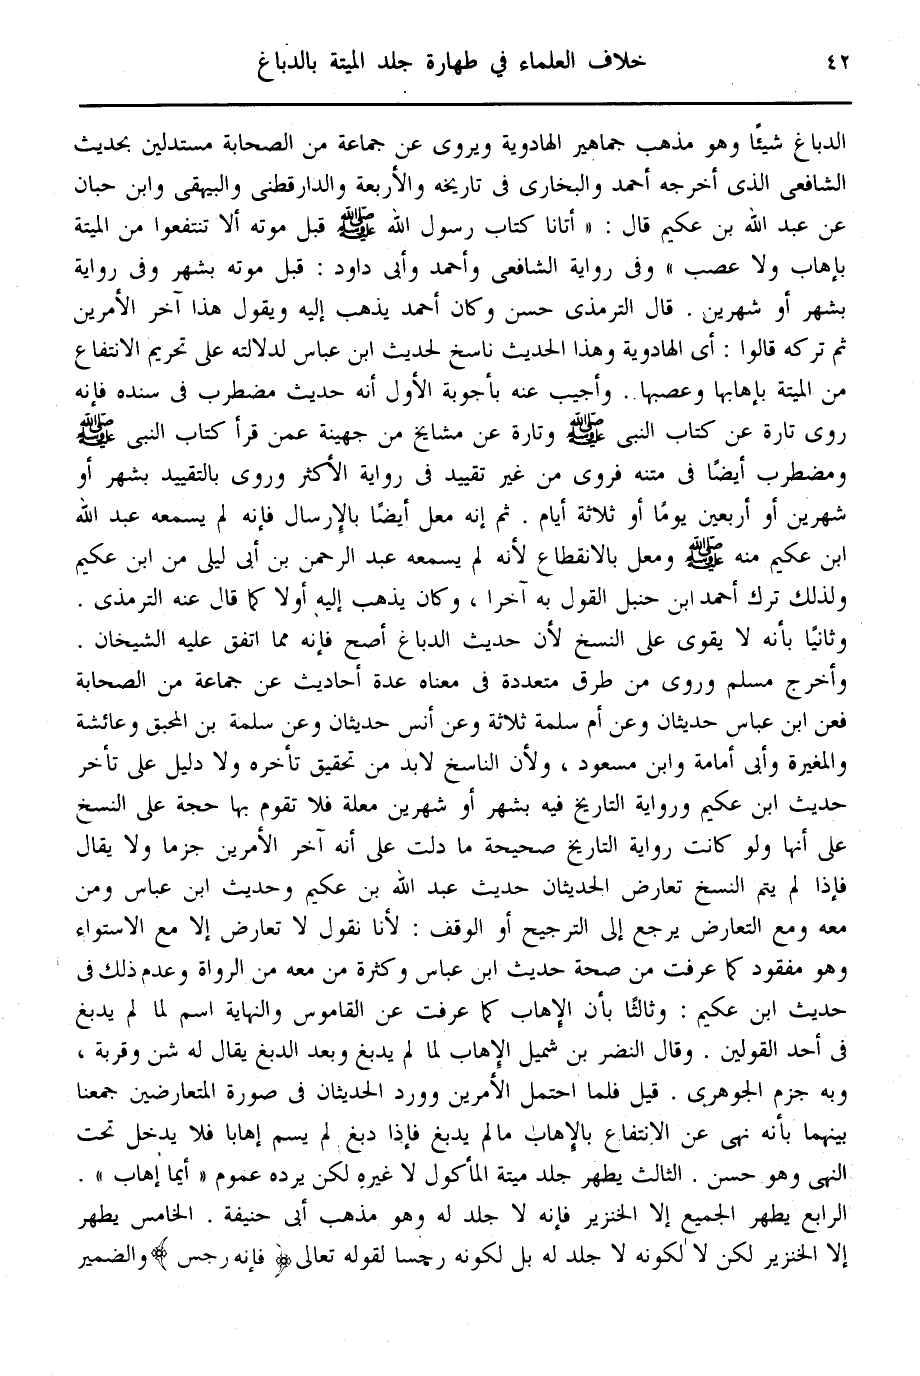 ٤٢ خلاف العلماء في طهارة جلد الميتة بالدباغ
الدباغ شيئًا وهو مذهب جماهير الهادوية ويروى عن جماعة من الصحابة مستدلين بحديث
الشافعى الذى أخرجه أحمد والبخارى فى تاريخه والأربعة والدارقطنى والبيهقى وابن حبان
عن عبد الله بن عكيم قال : « أتانا كتاب رسول الله ﷺ قبل موته ألا تنتفعوا من الميتة
بإهاب ولا عصب » وفى رواية الشافعى وأحمد وأبى داود : قبل موته بشهر وفى رواية
بشهر أو شهرين . قال الترمذى حسن وكان أحمد يذهب إليه ويقول هذا آخر الأمرين
ثم تركه قالوا : أى الهادوية وهذا الحديث ناسخ لحديث ابن عباس لدلالته على تحريم الانتفاع
من الميتة بإهابها وعصبها . وأجيب عنه بأجوبة الأول أنه حديث مضطرب فى سنده فإنه
روى تارة عن كتاب النبى ﷺ وتارة عن مشايخ من جهينة عمن قرأ كتاب النبى ﷺ
ومضطرب أيضًا فى متنه فروى من غير تقييد فى رواية الأكثر وروى بالتقييد بشهر أو
شهرين أو أربعين يومًا أو ثلاثة أيام . ثم إنه معل أيضًا بالإرسال فإنه لم يسمعه عبد الله
ابن عكيم منه ﷺ ومعل بالانقطاع لأنه لم يسمعه عبد الرحمن بن أبى ليلى من ابن عكيم
ولذلك ترك أحمد ابن حنبل القول به آخرا ، وكان يذهب إليه أولا كما قال عنه الترمذى .
وثانيًا بأنه لا يقوى على النسخ لأن حديث الدباغ أصح فإنه مما اتفق عليه الشيخان .
وأخرج مسلم وروى من طرق متعددة فى معناه عدة أحاديث عن جماعة من الصحابة
فعن ابن عباس حديثان وعن أم سلمة ثلاثة وعن أنس حديثان وعن سلمة بن المحبق وعائشة
والمغيرة وأبى أمامة وابن مسعود ، ولأن الناسخ لابد من تحقيق تأخره ولا دليل على تأخر
حديث ابن عكيم ورواية التاريخ فيه بشهر أو شهرين معلة فلا تقوم بها حجة على النسخ
على أنها ولو كانت رواية التاريخ صحيحة ما دلت على أنه آخر الأمرين جزما ولا يقال
فإذا لم يتم النسخ تعارض الحديثان حديث عبد الله بن عكيم وحديث ابن عباس ومن
معه ومع التعارض يرجع إلى الترجيح أو الوقف : لأنا نقول لا تعارض إلا مع الاستواء
وهو مفقود كما عرفت من صحة حديث ابن عباس وكثرة من معه من الرواة وعدم ذلك فى
حديث ابن عكيم : وثالثًا بأن الإهاب كما عرفت عن القاموس والنهاية اسم لما لم يدبغ
فى أحد القولين . وقال النضر بن شميل الإهاب لما لم يدبغ وبعد الدبغ يقال له شن وقربة ،
وبه جزم الجوهرى . قيل فلما احتمل الأمرين وورد الحديثان فى صورة المتعارضين جمعنا
بينهما بأنه نهى عن الانتفاع بالإهاب مالم يدبغ فإذا دبغ لم يسم إهابا فلا يدخل تحت
النهى وهو حسن . الثالث يطهر جلد ميتة المأكول لا غيره لكن يرده عموم « أيما إهاب » .
الرابع يطهر الجميع إلا الخنزير فإنه لا جلد له وهو مذهب أبى حنيفة . الخامس يطهر
إلا الخنزير لكن لا لكونه لا جلد له بل لكونه رجسا لقوله تعالى ﴿ فإنه رجس ﴾ والضمير